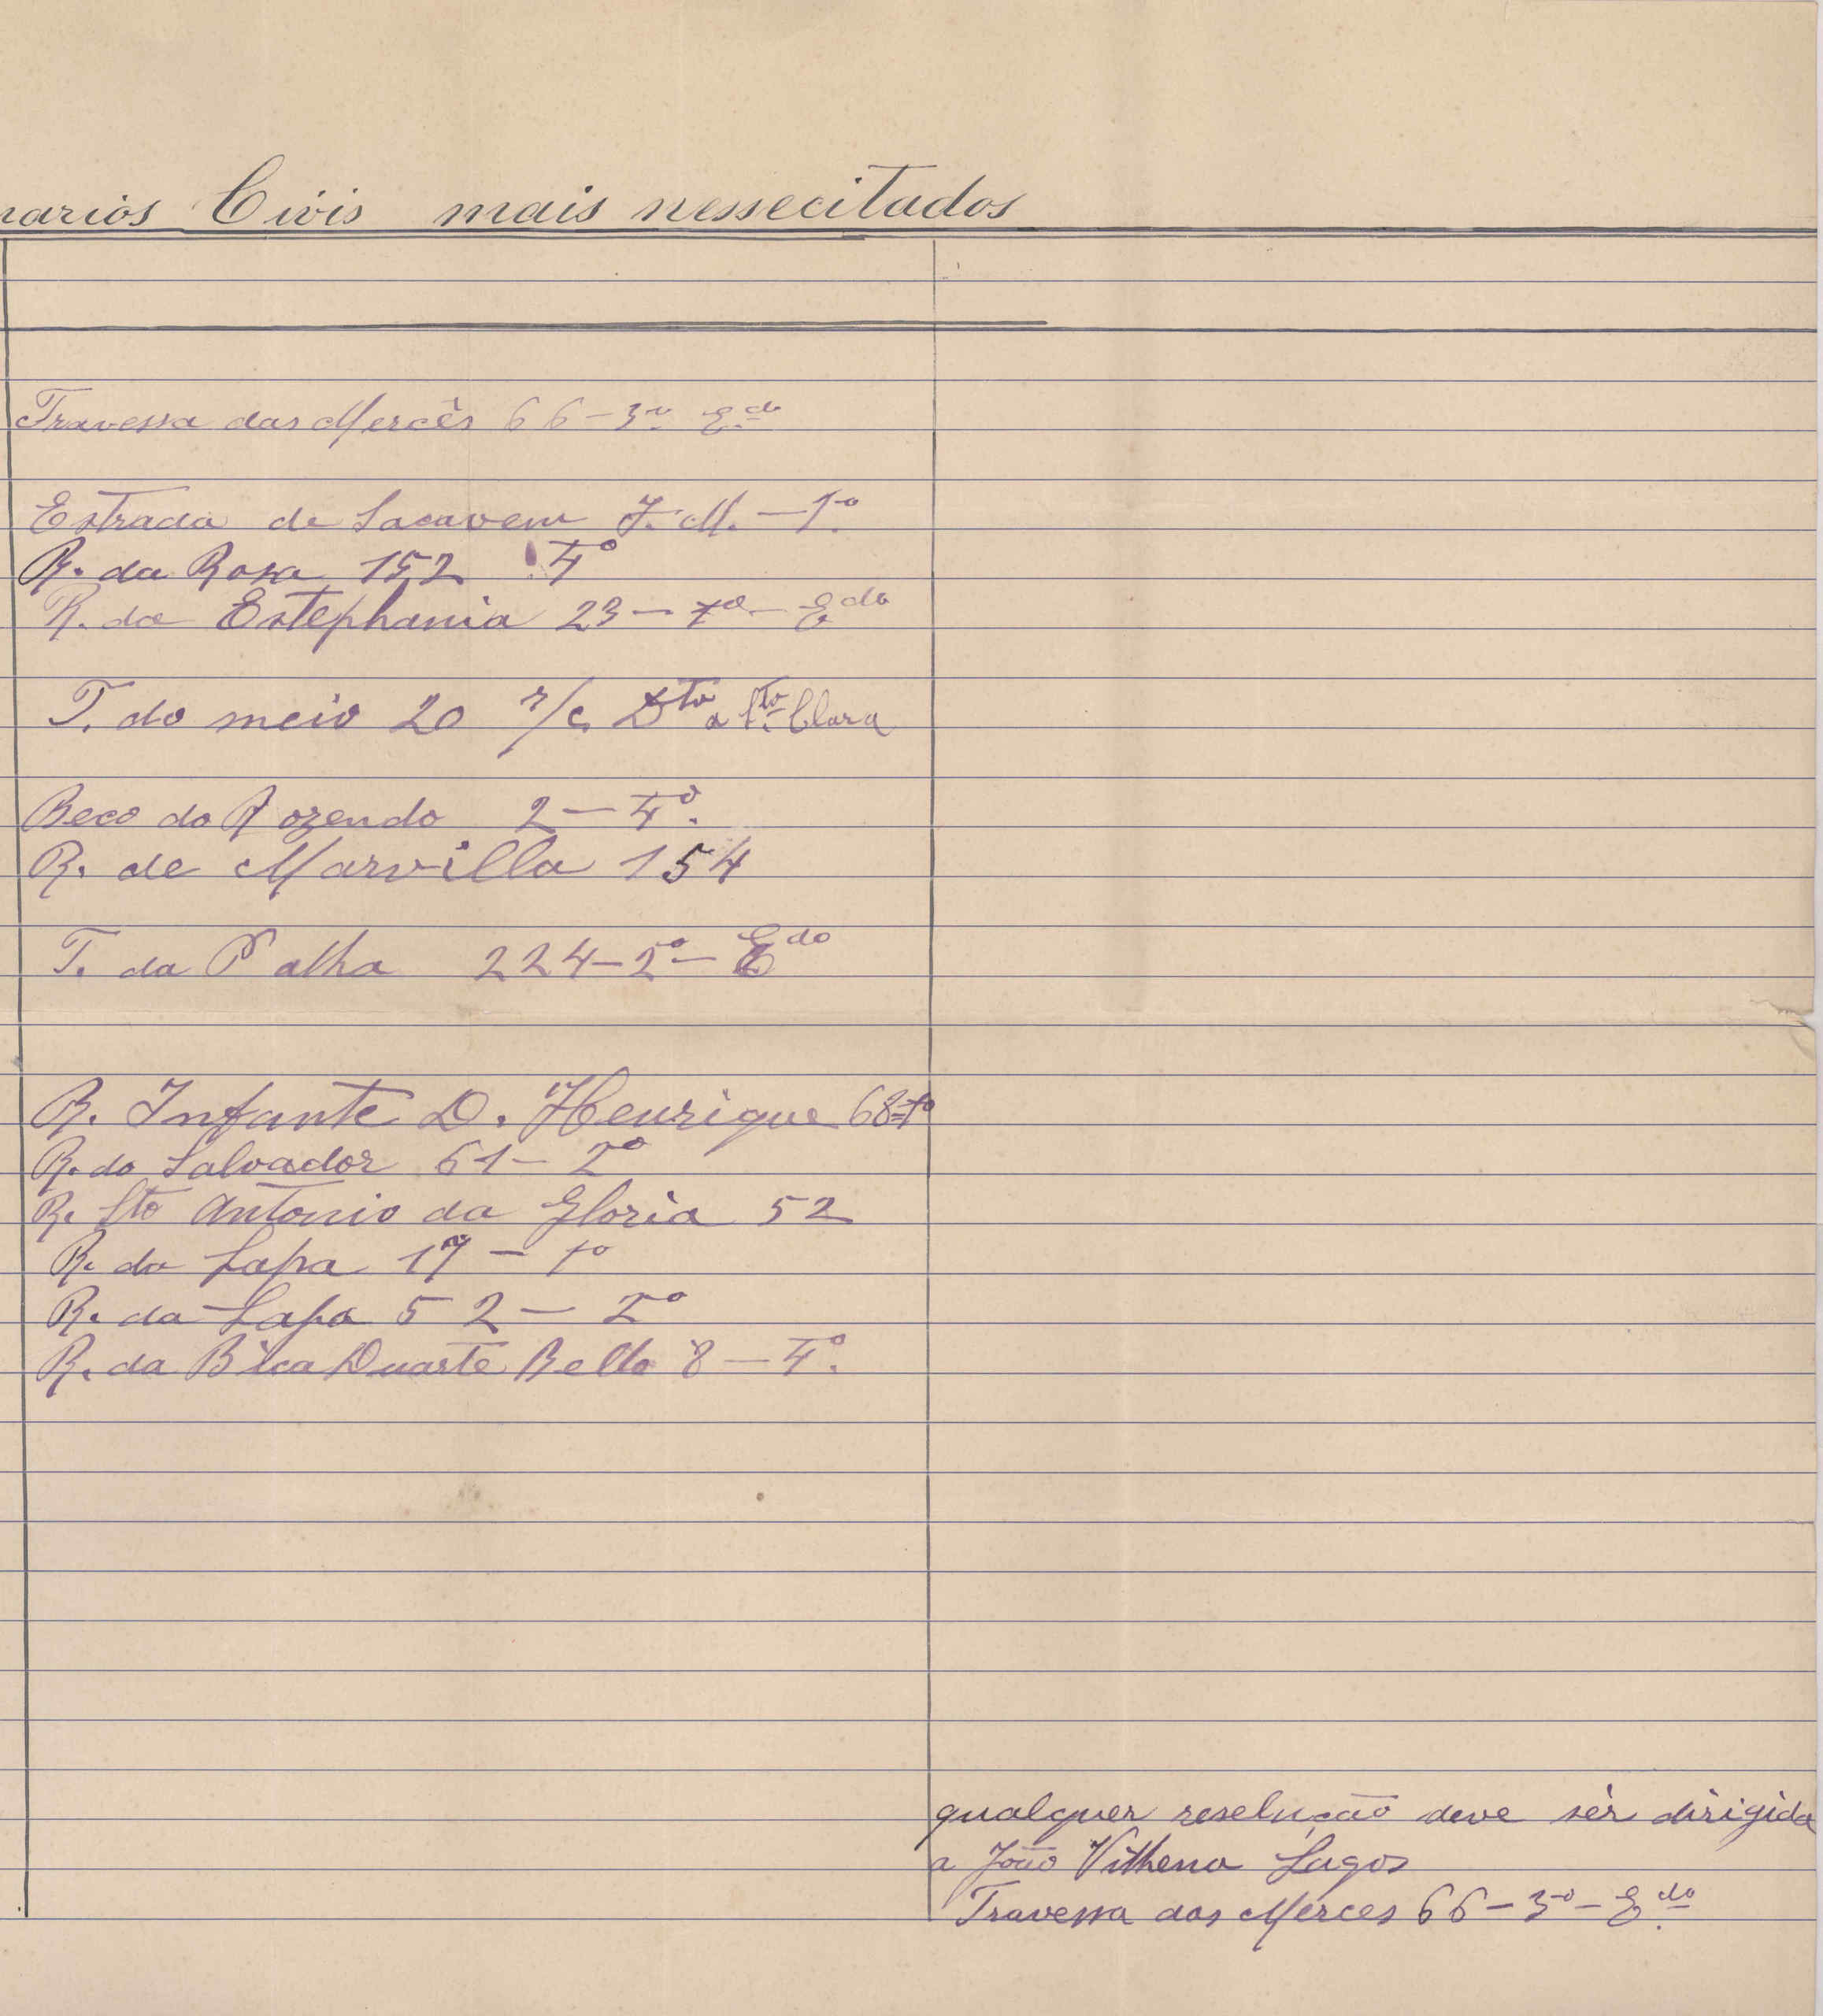 narios Civis mais nessecitados
Travessa das Mercês 66-3º E.do
Estrada de Sacavem J. M. - 1º
R. da Rosa 152 4º
R. da Estephania 23 - 1º - Edo
T. do meio 20 r/c Dto a Sta Clara
Beco do Rozendo 2 - 4º.
R. de Marvilla 154
T. da Palha 224 - 2º - Edo
R. Infante D. Henrique 68-1º
R. do Salvador 61 - 2º
R. Sto Antonio da Gloria 52
R. da Lapa 17 - 1º
R. da Lapa 52 - 2º
R. da Bica Duarte Bello 8 - 4º.
qualquer reselução deve sêr dirigida
a João Vilhena Lagos
Travessa das Merces 66 - 3º - E.do